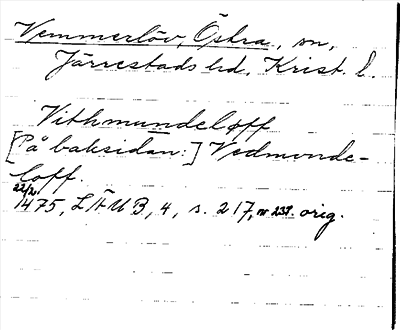 Vemmerlöv, Östra, sn,
Järrestads hd, Krist. l.
Vithmundeløff
[På baksidan:] Vedmunde-
loff.
22/2
1475, LÄUB, 4, s. 217, nr 237. orig.